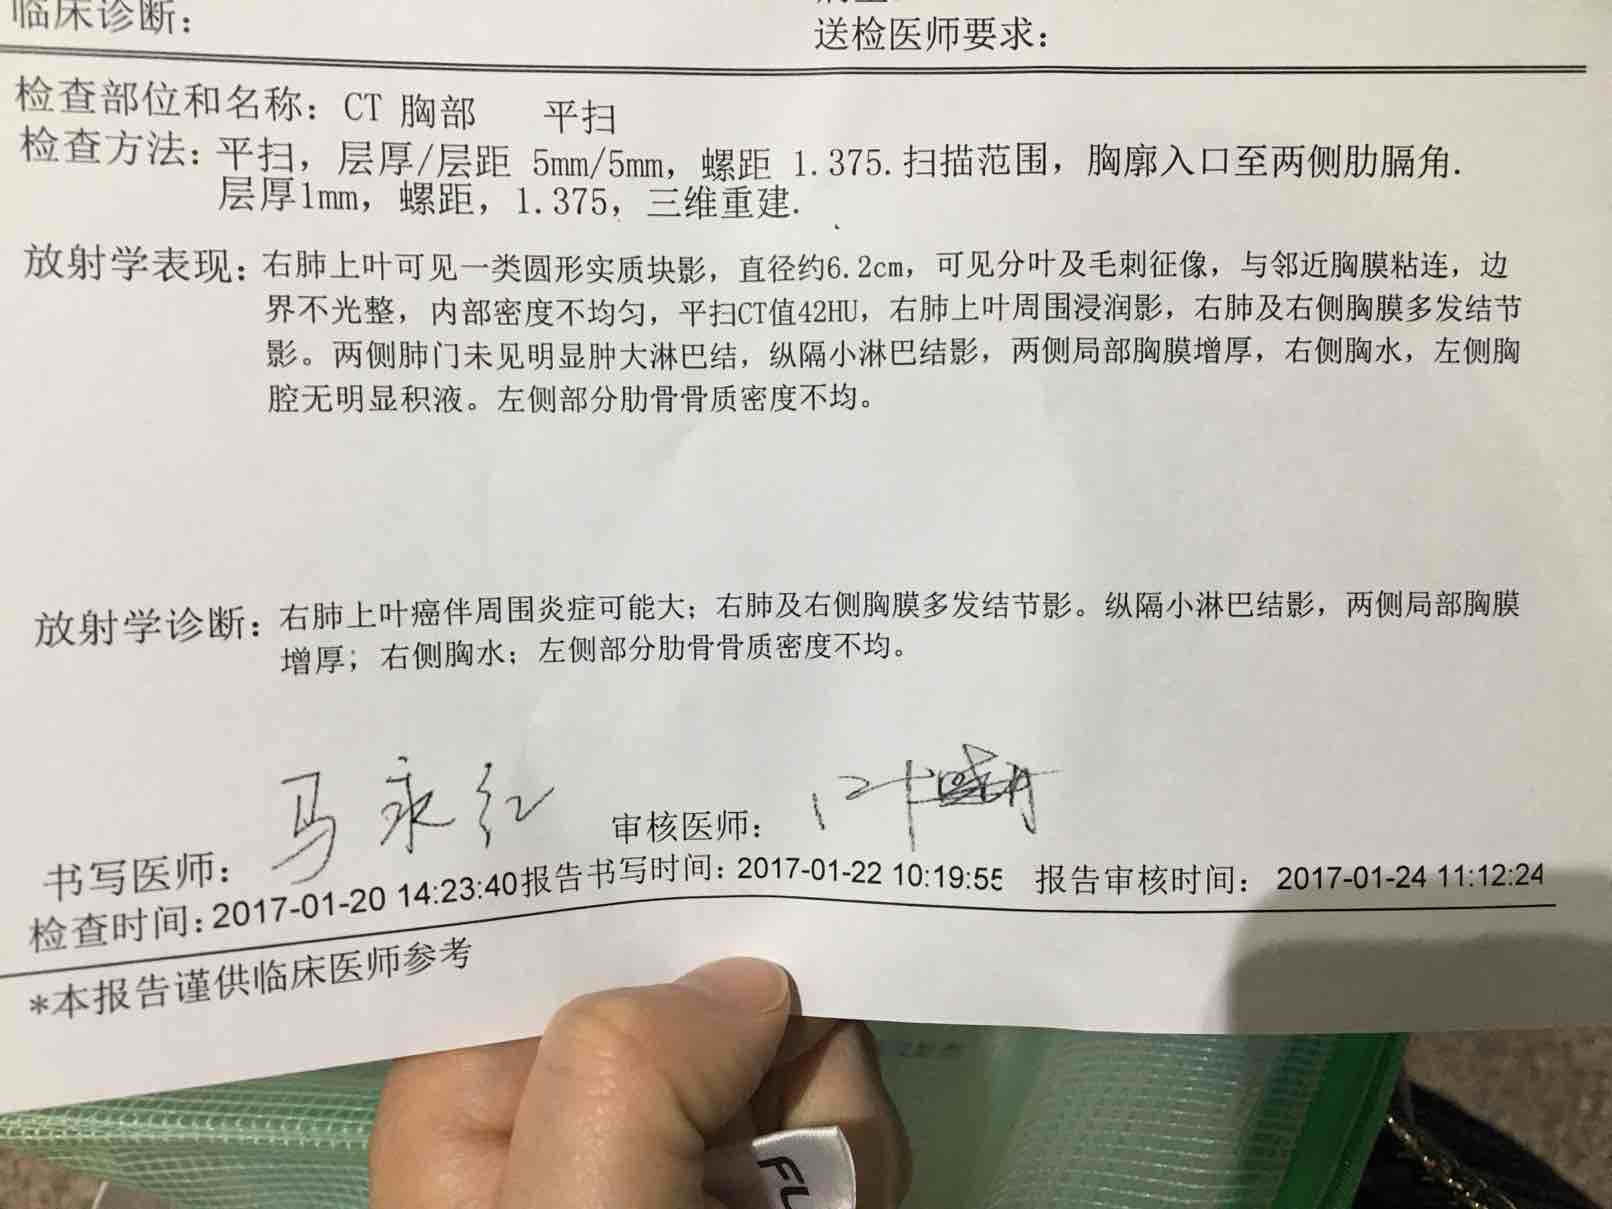 临床诊断：
送检医师要求：
检查部位和名称：CT 胸部 平扫
检查方法：平扫，层厚/层距 5mm/5mm，螺距 1.375.扫描范围，胸廓入口至两侧肋膈角.
层厚1mm，螺距，1.375，三维重建.
放射学表现：右肺上叶可见一类圆形实质块影，直径约6.2cm，可见分叶及毛刺征像，与邻近胸膜粘连，边
界不光整，内部密度不均匀，平扫CT值42HU，右肺上叶周围浸润影，右肺及右侧胸膜多发结节
影。两侧肺门未见明显肿大淋巴结，纵隔小淋巴结影，两侧局部胸膜增厚，右侧胸水，左侧胸
腔无明显积液。左侧部分肋骨骨质密度不均。
放射学诊断：右肺上叶癌伴周围炎症可能大；右肺及右侧胸膜多发结节影。纵隔小淋巴结影，两侧局部胸膜
增厚；右侧胸水；左侧部分肋骨骨质密度不均。
书写医师：马永红 审核医师：叶
检查时间：2017-01-20 14:23:40报告书写时间：2017-01-22 10:19:55 报告审核时间：2017-01-24 11:12:24
*本报告谨供临床医师参考
FU